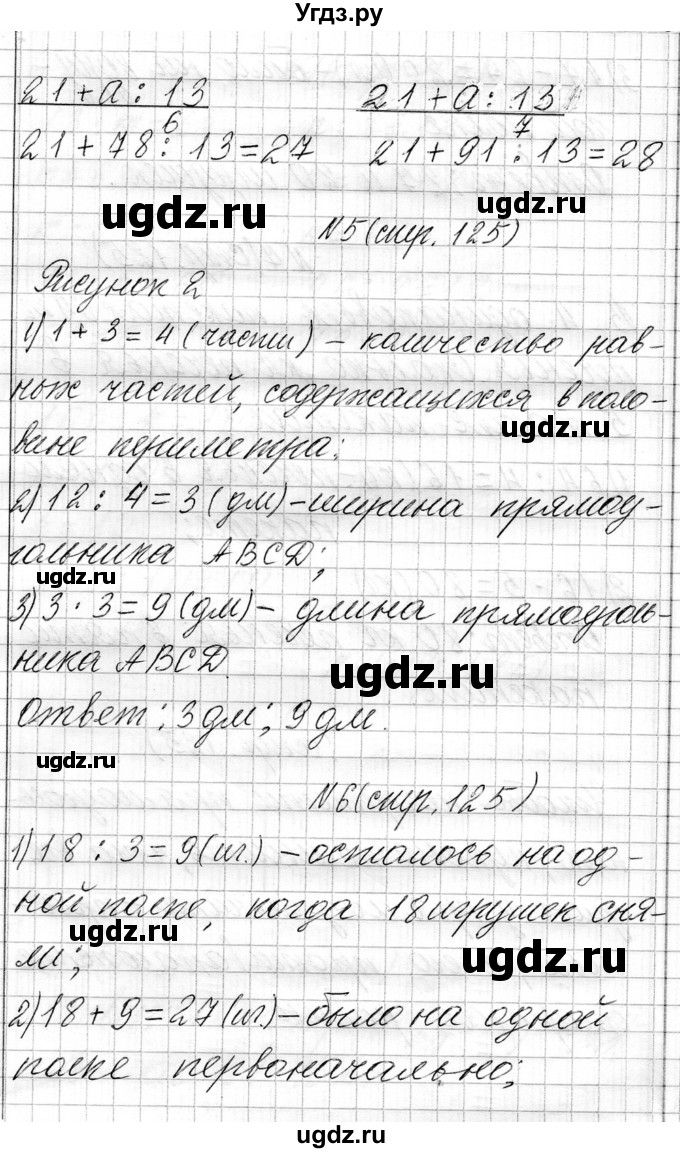 Угдз.ру
21+a : 13 21+a : 13
6 7
21+78 : 13=27 21+91 : 13=28
ugdz.ru ugdz.ru
N5(стр. 125)
Рисунок 2
1) 1+3=4 (части) – количество рав-
ных частей, содержащихся в поло-
ugdz.ru
вине периметра;
2) 12 : 4=3 (дм) – ширина прямоу-
гольника ABCD;
ugdz.ru
3) 3 · 3=9 (дм) – длина прямоуголь-
ника ABCD.
ugdz.ru
Ответ: 3 дм; 9 дм.
ugdz.ru
N6(стр. 125)
1) 18 : 3=9 (иг.) – осталось на од-
ной полке, когда 18 игрушек сня-
ugdz.ru
ли;
ugdz.ru
2) 18+9=27 (иг.) – было на одной
полке первоначально;
ugdz.ru
ugdz.ru